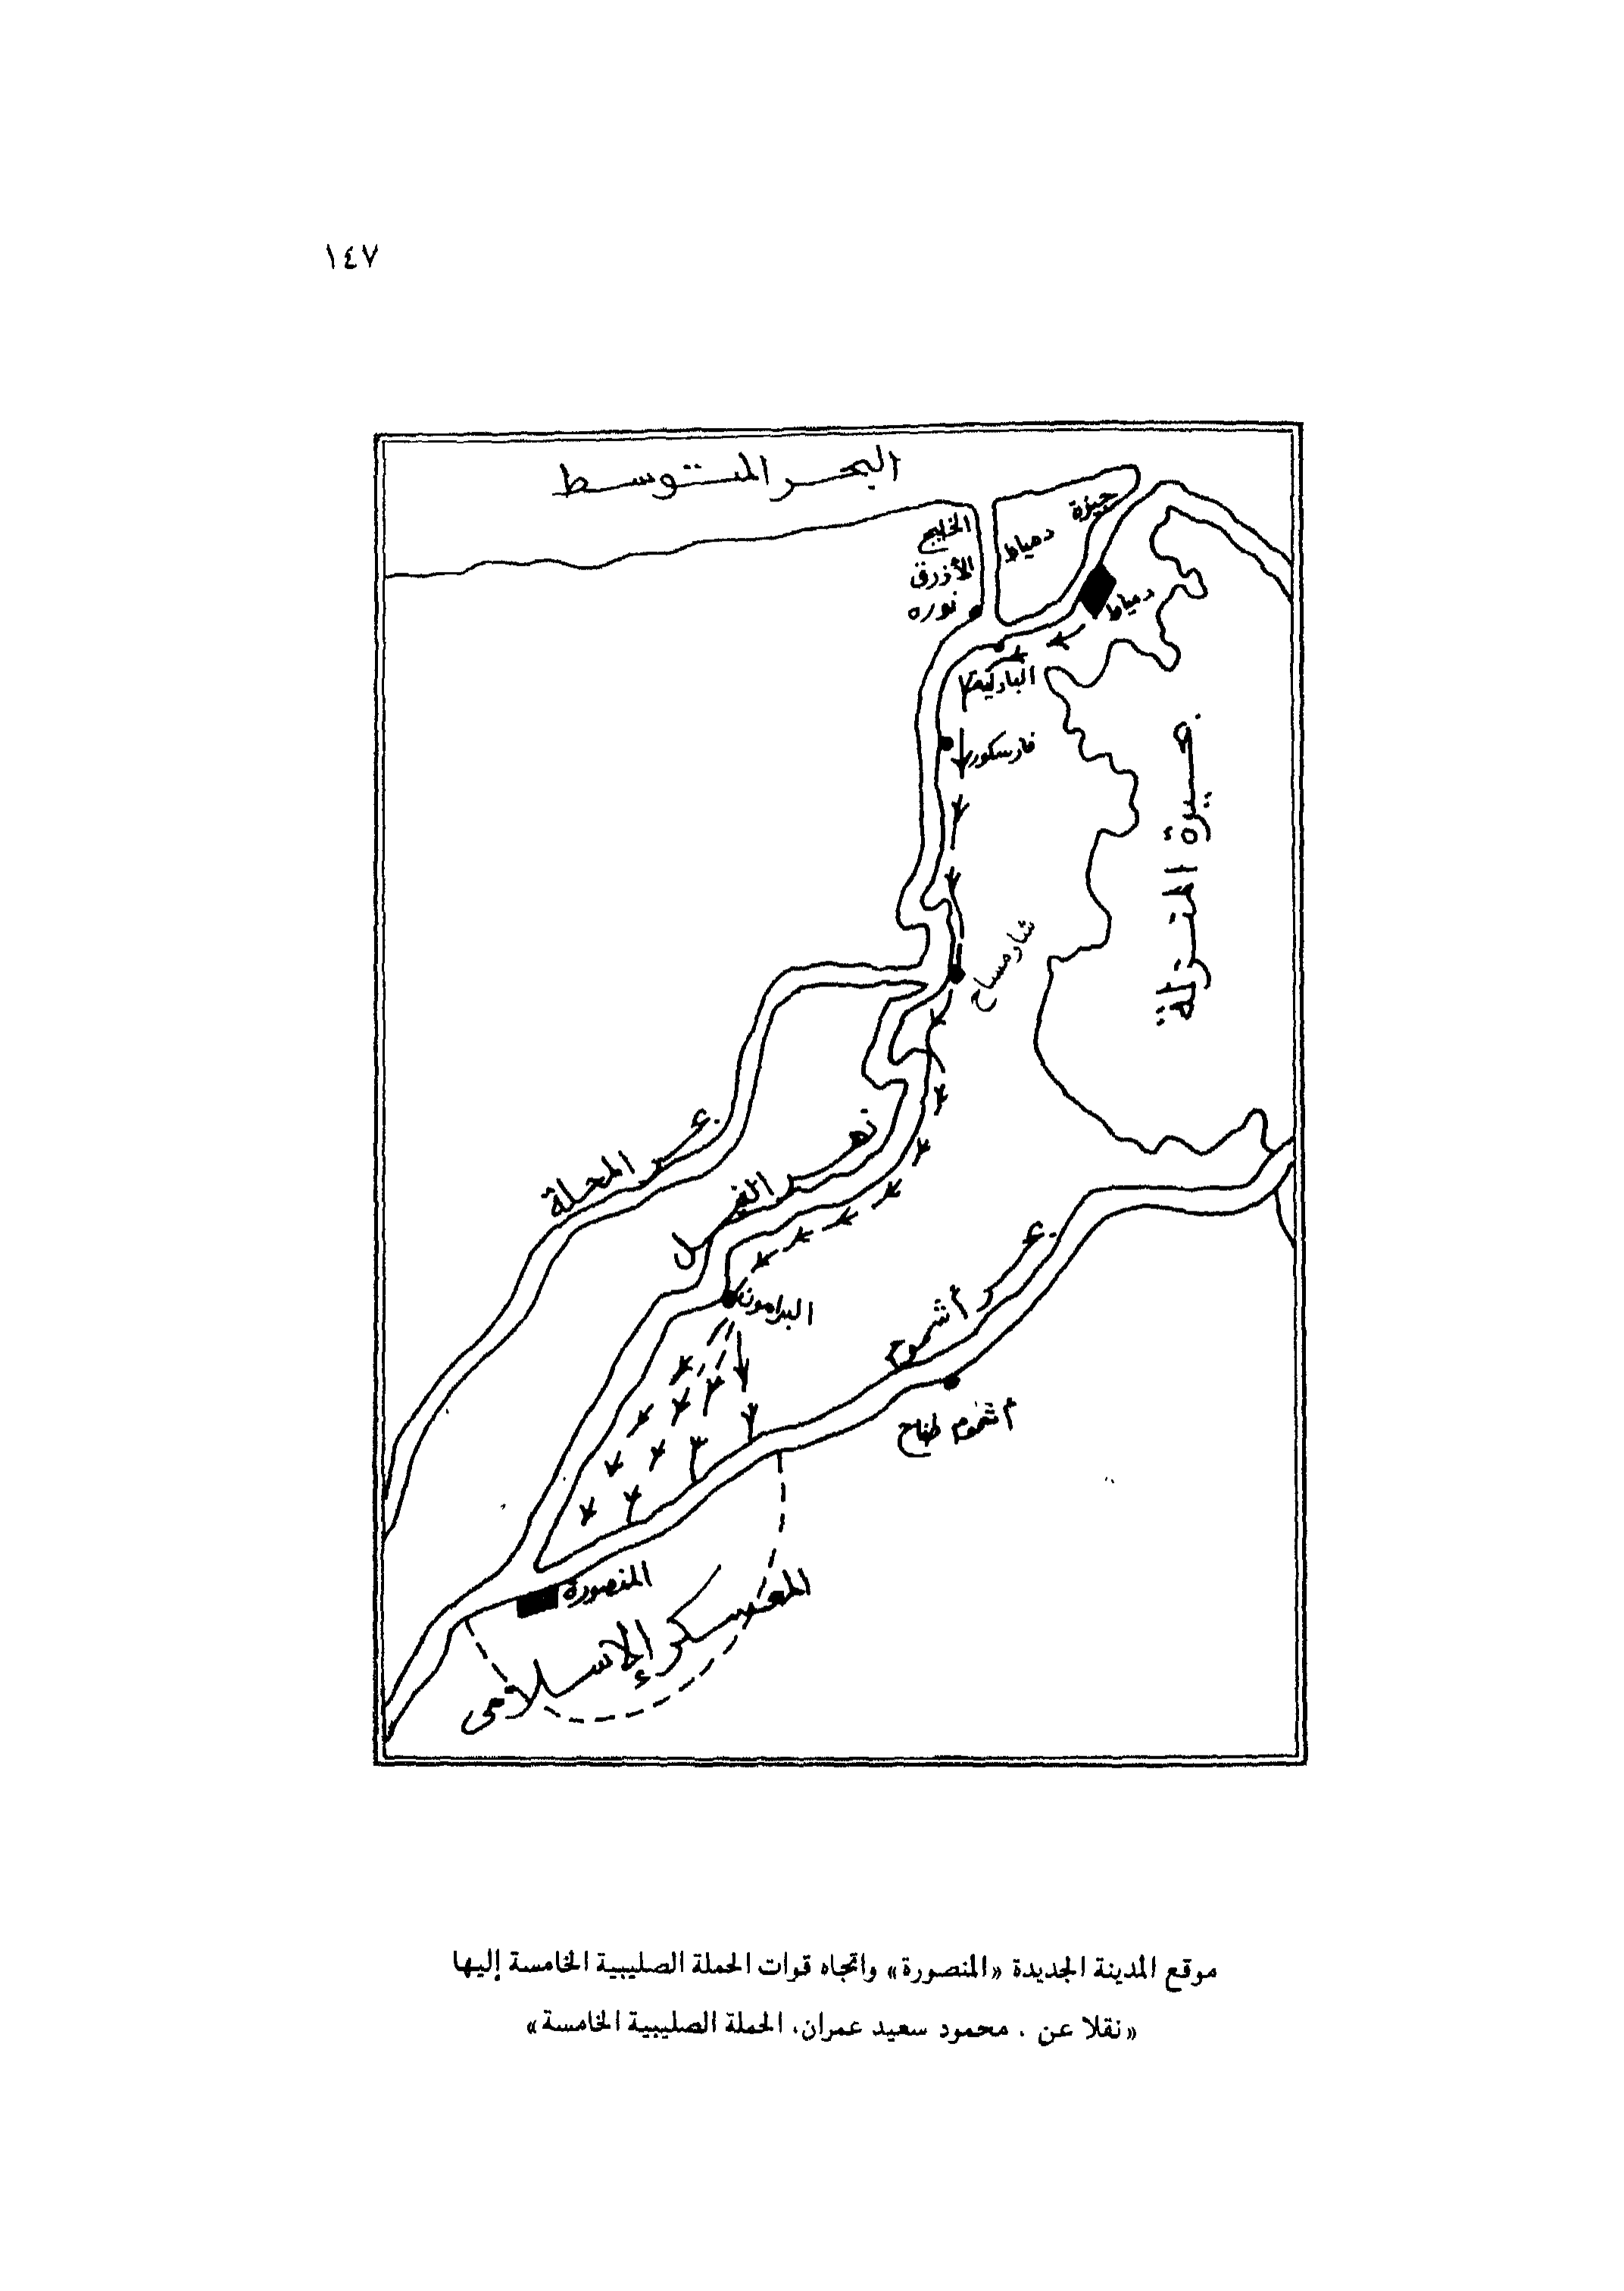 ١٤٧
البحر المتوسط
جيزة
دمياط
الخليج
الأزرق
نوره
دمياط
فارسكور
بحيرة المنزلة
شارمساح
بحر المحلة
نهر النيل
البرامون
بحر أشموم
أشموم طناح
المنصورة
المعسكر الإسلامى
موقع المدينة الجديدة «المنصورة» واتجاه قوات الحملة الصليبية الخامسة إليها
«نقلا عن . محمود سعيد عمران، الحملة الصليبية الخامسة»